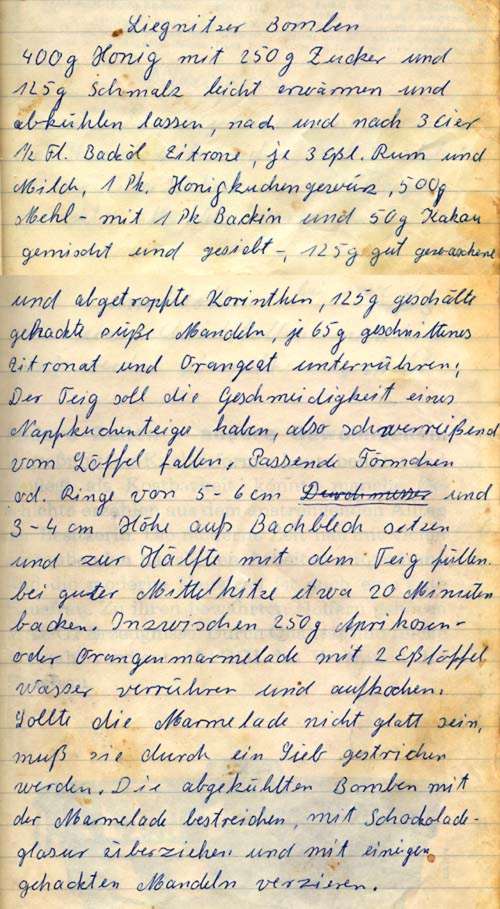 Liegnitzer Bomben
400g Honig mit 250g Zucker und
125g Schmalz leicht erwärmen und
abkühlen lassen, nach und nach 3 Eier
½ Fl. Backöl Zitrone, je 3 Eßl. Rum und
Milch, 1 Pk. Honigkuchengewürz, 500g
Mehl - mit 1 Pk Backin und 50g Kakau
gemischt und gesiebt -, 125g gut gewaschene
und abgetropfte Korinthen, 125g geschälte
gehackte süße Mandeln, je 65g geschnittenes
Zitronat und Orangeat unterrühren;
Der Teig soll die Geschmeidigkeit eines
Nappkuchenteiges haben, also schwerreißend
vom Löffel fallen. Passende Förmchen
od. Ringe von 5-6 cm Durchmesser und
3-4 cm Höhe aufs Backblech setzen
und zur Hälfte mit dem Teig füllen.
bei guter Mittelhitze etwa 20 Minuten
backen. Inzwischen 250g Aprikosen-
oder Orangenmarmelade mit 2 Eßlöffel
Wasser verrühren und aufkochen.
Sollte die Marmelade nicht glatt sein,
muß sie durch ein Sieb gestrichen
werden. Die abgekühlten Bomben mit
der Marmelade bestreichen, mit Schockolade-
glasur überziehen und mit einigen
gehackten Mandeln verzieren.